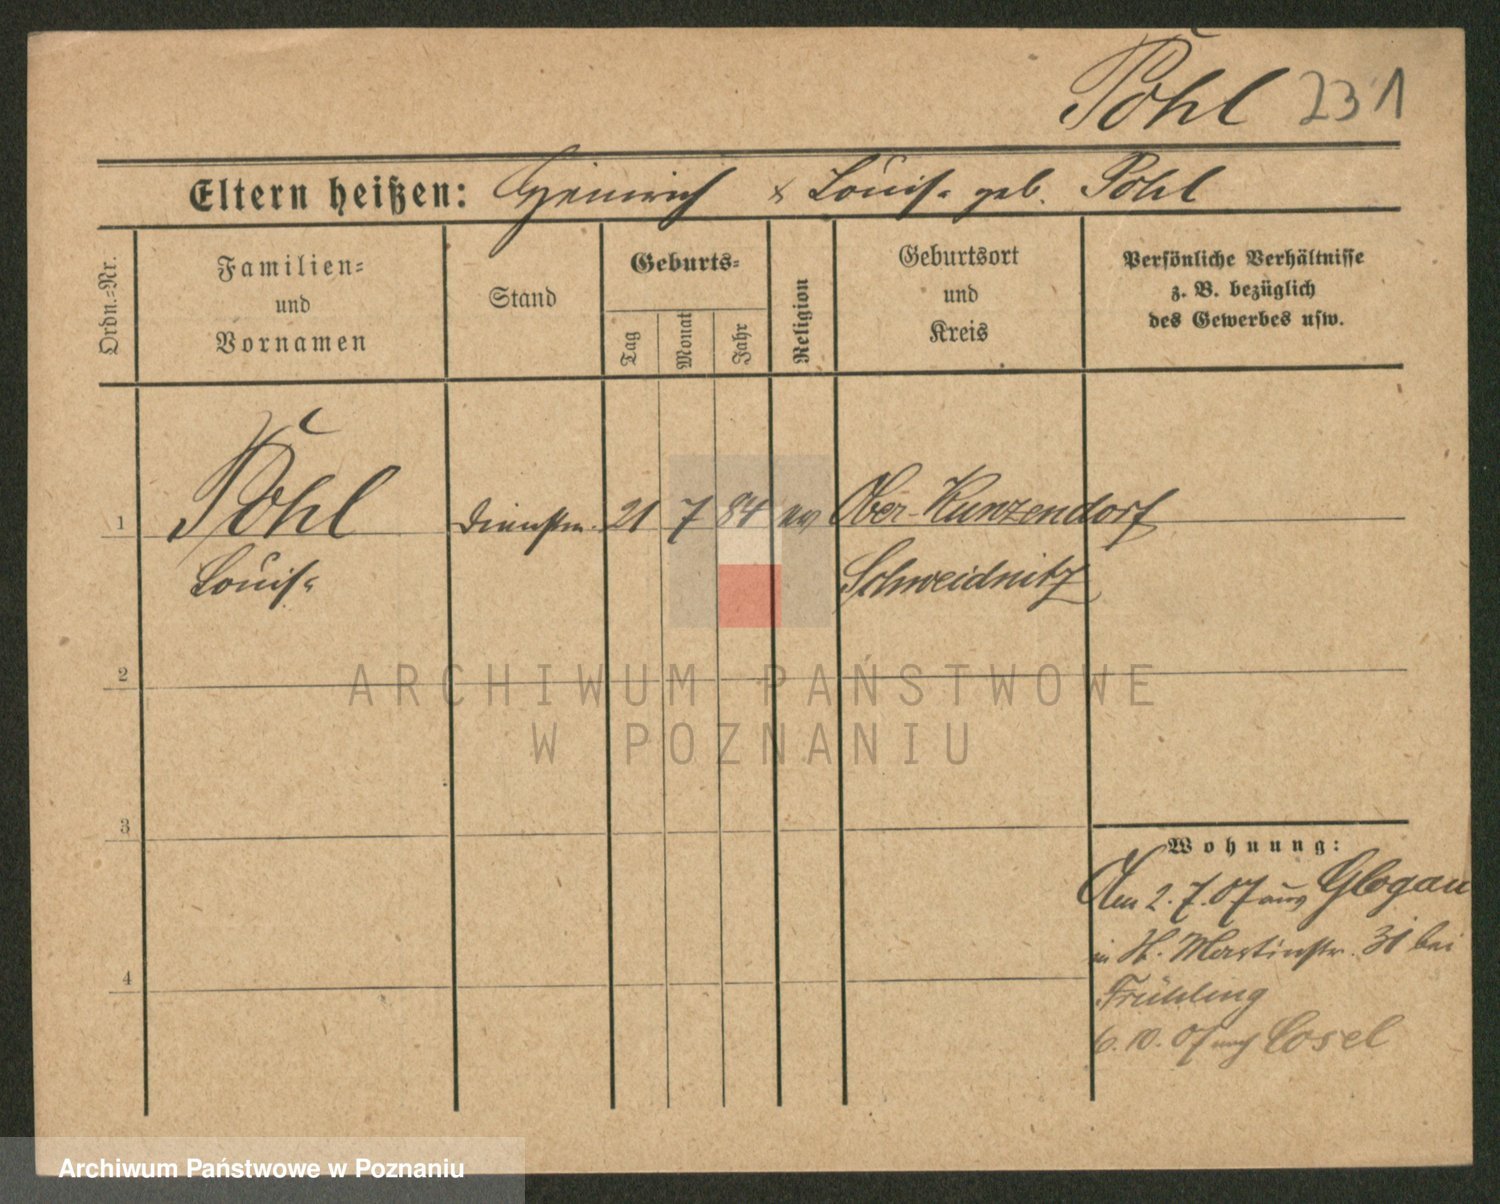 Pohl 231
Eltern heißen: Heinrich & Louise geb. Pohl
Ordn.-Nr.
Familien-
und
Vornamen
Stand
Geburts-
Tag
Monat
Jahr
Religion
Geburtsort
und
Kreis
Persönliche Verhältnisse
z. B. bezüglich
des Gewerbes usw.
1 Pohl Dienstm. 21 7 84 ev Ober-Kunzendorf
Louise Schweidnitz
2
ARCHIWUM PAŃSTWOWE
W POZNANIU
3
Wohnung:
Am 2.7.07 aus Glogau
in St. Martinstr. 31 bei
4
Frühling
6.10.07 nach Cosel
Archiwum Państwowe w Poznaniu